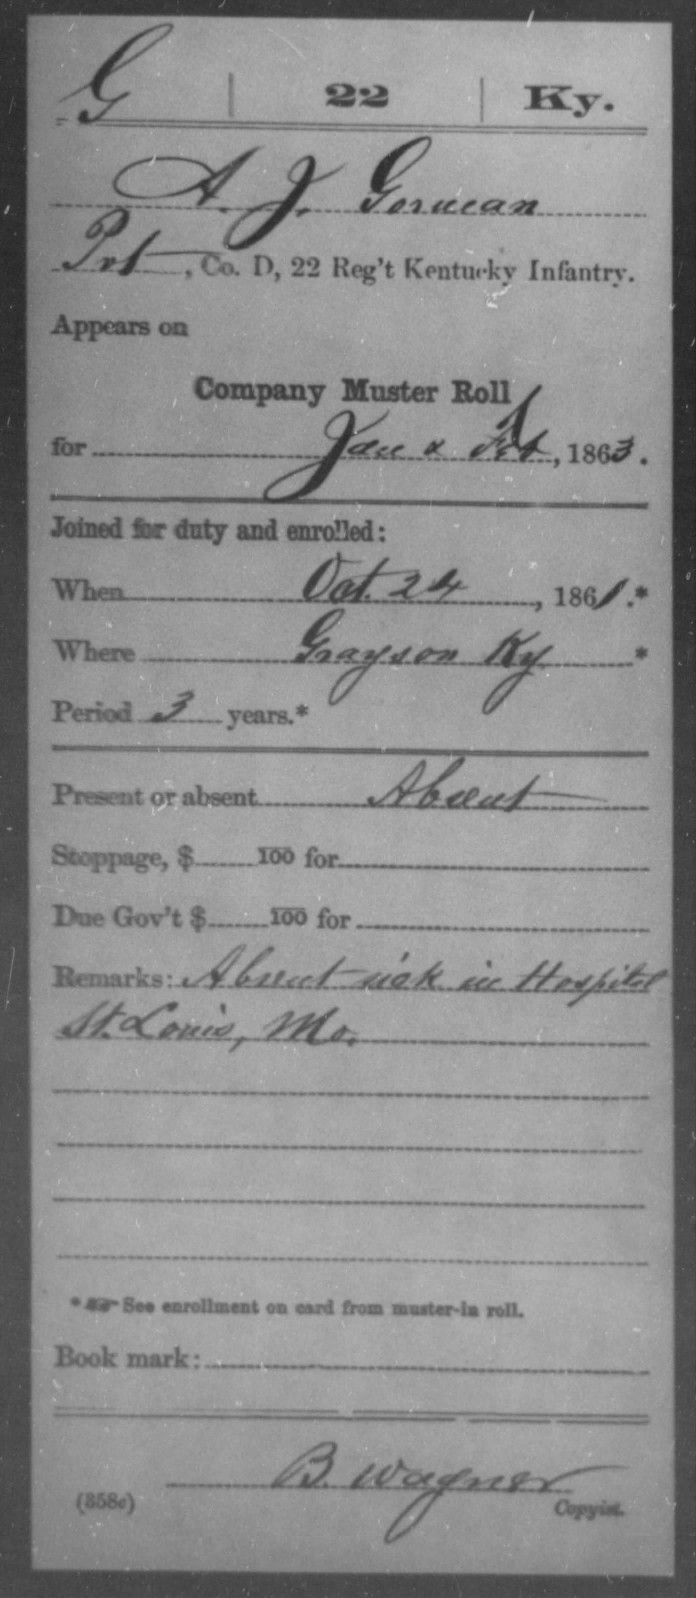 G | 22 | Ky.
A. J. Gorman
Pvt, Co. D, 22 Reg't Kentucky Infantry.
Appears on
Company Muster Roll
for Jan & Feb, 1863.
Joined for duty and enrolled:
When Oct. 24, 1861.*
Where Grayson Ky *
Period 3 years.*
Present or absent Absent
Stoppage, $ 100 for
Due Gov't $ 100 for
Remarks: Absent sick in Hospital
St. Louis, Mo.
* See enrollment on card from muster-in roll.
Book mark:
B. Wagner
(358c) Copyist.